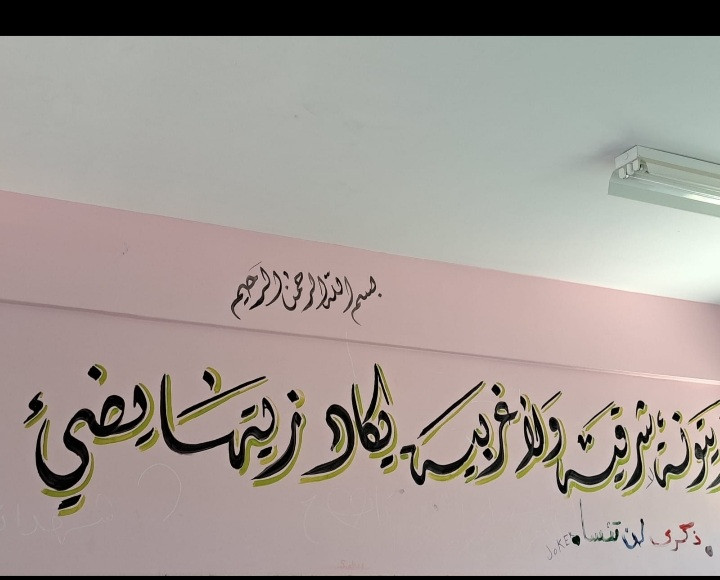 بسم الله الرحمن الرحيم
زيتونة، شرقية ولا غربية يكاد زيتها يضيئ
ذكرى لن تنسا
JOKER